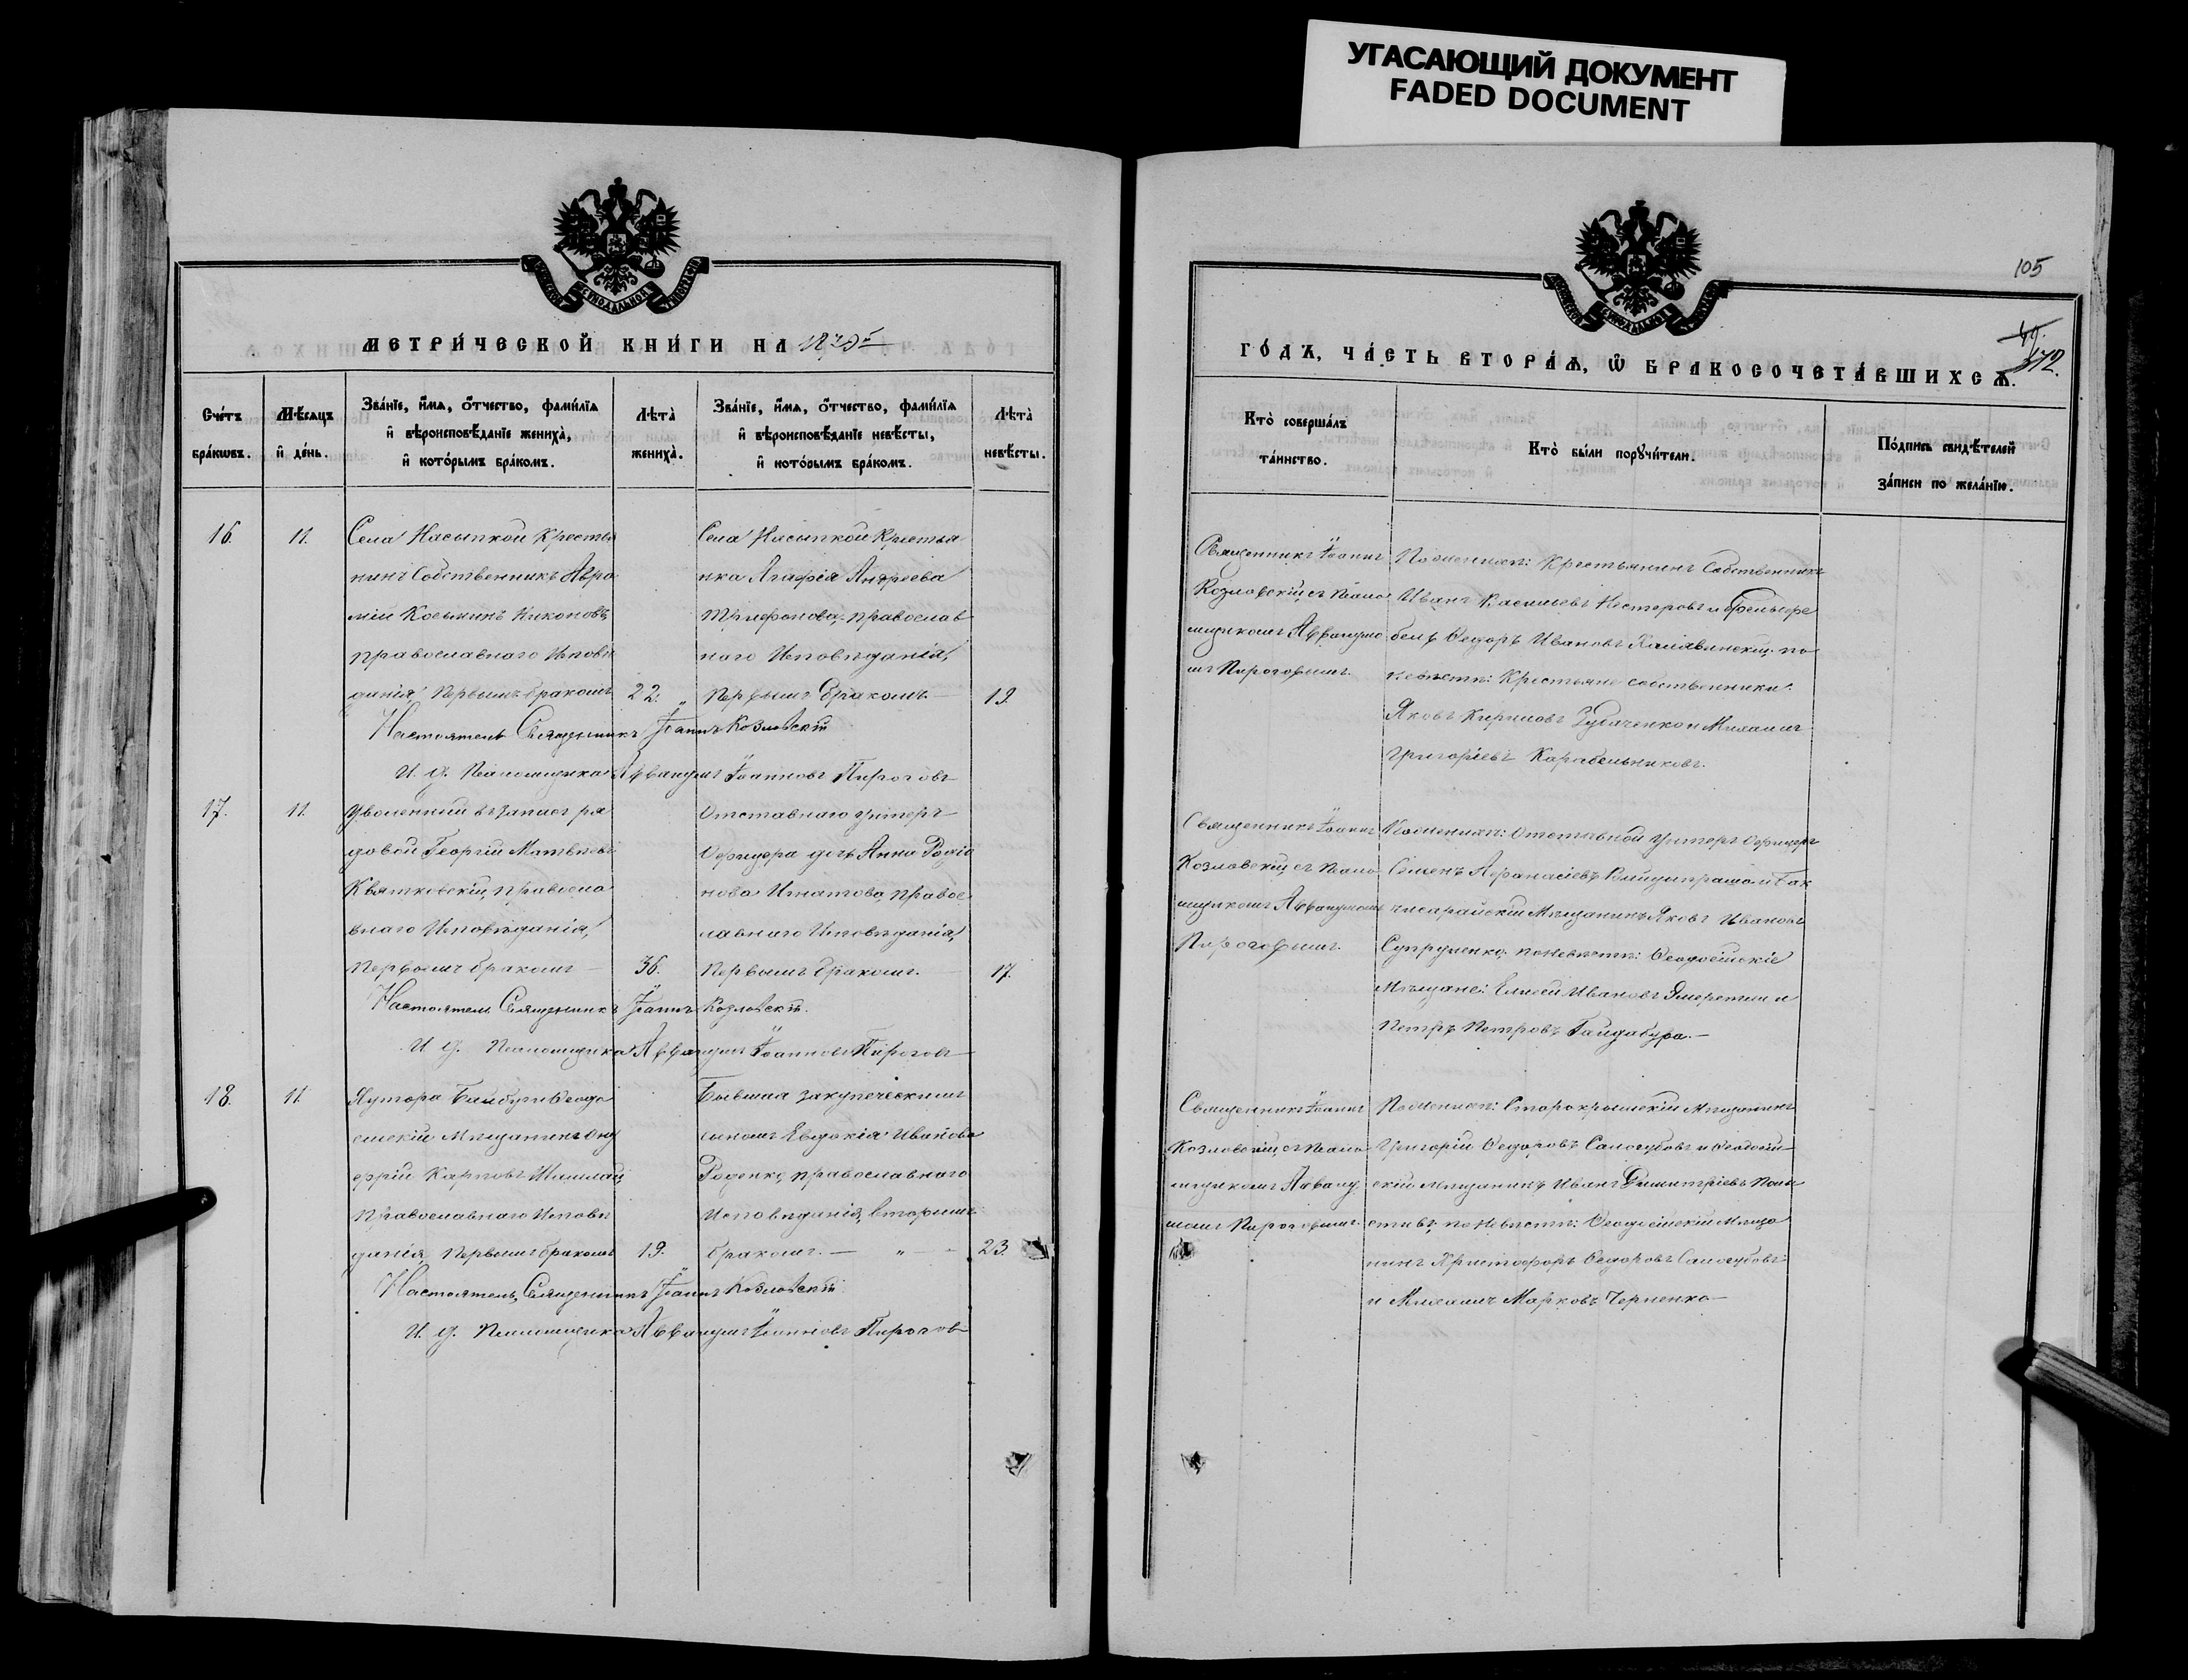 УГАСАЮЩИЙ ДОКУМЕНТ
FADED DOCUMENT
МЕТРИ́ЧЕСКОЙ КНИ́ГИ НА
Сче́тъ бра́кѡвъ.
Мѣ́сяцъ и҆ де́нь.
Зва́нїе, и҆́мя, ѻ҆́тчество, фами́лїя и҆ вѣроисповѣ́данїе жениха̀, и҆ кото́рымъ бра́комъ.
Лѣта̀ жениха̀.
Зва́нїе, и҆́мя, ѻ҆́тчество, фами́лїя и҆ вѣроисповѣ́данїе невѣ́сты, и҆ кото́рымъ бра́комъ.
Лѣта̀ невѣ́сты.
16.
11.
Села Насыпкой Крестья
нинъ Собственникъ Авра
мій Косьминъ Никоновъ,
православнаго Исповѣ
данія, Первымъ бракомъ
22.
Села Насыпкой Крестья
нка Агафія Андреева
Трифонова, православ
наго Исповѣданія,
Первымъ бракомъ.
19.
Настоятель Священникъ Іоаннъ Козловскій
И. д. Псаломщика Аввакумъ Іоанновъ Пироговъ
17.
11.
Уволенный въ запасъ ря
довой Георгій Матвѣевъ
Квятковскій, правосла
внаго Исповѣданія,
Первымъ бракомъ
36.
Отставнаго Унтеръ
Офицера дочь Анна Родіо
нова Игнатова, правос
лавнаго Исповѣданія,
Первымъ бракомъ.
17.
Настоятель Священникъ Іоаннъ Козловскій.
И. д. Псаломщика Аввакумъ Іоанновъ Пироговъ
18.
11.
Хутора Бамбули Ѳеодо
сійскій Мѣщанинъ Ону
фрій Карповъ
православнаго Исповѣ
данія, Первымъ бракомъ
19.
Бывшая за купеческимъ
сыномъ Евдокія Иванова
Роденко, православнаго
Исповѣданія, вторымъ
бракомъ.
23.
Настоятель, Священникъ Іоаннъ Козловскій
И. д. Псаломщика Аввакумъ Іоанновъ Пироговъ
105
172.
ГО́ДЪ, ЧА́СТЬ ВТОРА́Ѧ, Ѽ БРАКОСОЧЕТА́ВШИХСѦ.
Кто̀ соверша́лъ та́инство.
Кто̀ бы́ли порꙋчи́тели.
По́дпись свидѣ́телей за́писи по жела́нїю.
Священникъ Іоаннъ
Козловскій, съ Псало
мщикомъ Аввакумо
мъ Пироговымъ.
По женихѣ: Крестьянинъ Собственникъ
Иванъ Васильевъ Нестеровъ и Фельдфе
бель Ѳедоръ Ивановъ по
невѣстѣ: Крестьяне собственники:
Яковъ Кириловъ Зубаченко и Михаилъ
Григорьевъ Карабельниковъ.
Священникъ Іоаннъ
Козловскій, съ Псало
мщикомъ Аввакумомъ
Пироговымъ.
По женихѣ: Отставной Унтеръ Офицеръ
Семенъ Афанасіевъ и Бах
чисарайскій Мѣщанинъ Яковъ Ивановъ
Супруненко, по невѣстѣ: Ѳеодосійскіе
Мѣщане: Елисей Ивановъ и
Петръ Петровъ Гайдабура.
Священникъ Іоаннъ
Козловскій, съ Псало
мщикомъ Аввакумомъ
Пироговымъ.
По женихѣ: Старокрымскій Мѣщанинъ
Григорій Ѳедоровъ Самогубовъ и Ѳеодосій
скій мѣщанинъ Иванъ Димитріевъ
по невѣстѣ: Ѳеодосійскій Мѣща
нинъ Христофоръ Ѳедоровъ Самогубовъ
и Михаилъ Марковъ Черненко